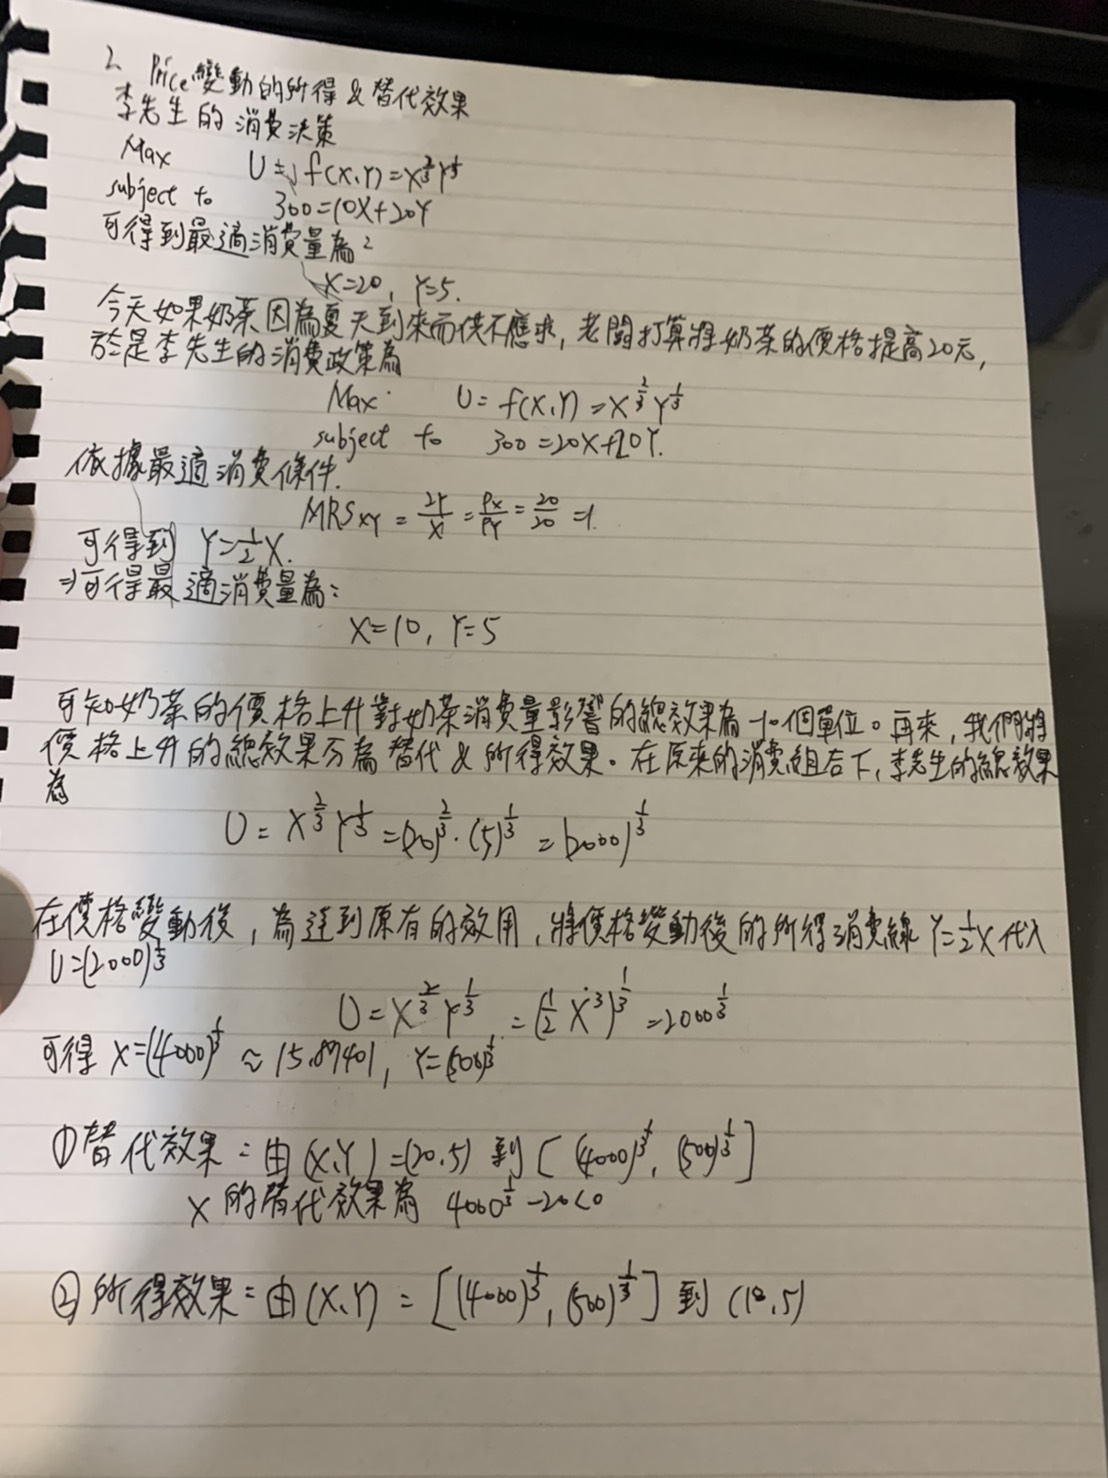 2. Price變動的所得 & 替代效果
李先生的消費決策
Max U = f(X,Y) = X^{2/3} Y^{1/3}
subject to 300 = 10X + 20Y
可得到最適消費量為:
X=20, Y=5.
今天如果奶茶因為夏天到來而供不應求, 老闆打算將奶茶的價格提高20元,
於是李先生的消費政策為
Max. U = f(X,Y) = X^{2/3} Y^{1/3}
subject to 300 = 20X + 20Y.
依據最適消費條件.
MRS_{XY} = 2Y/X = P_X/P_Y = 20/20 = 1.
可得到 Y = 1/2 X.
⇒可得最適消費量為:
X=10, Y=5
可知奶茶的價格上升對奶茶消費量影響的總效果為 -10個單位。再來, 我們將
價格上升的總效果分為替代 & 所得效果。在原來的消費組合下, 李先生的總效果
為
U = X^{2/3} Y^{1/3} = (20)^{2/3} · (5)^{1/3} = (2000)^{1/3}
在價格變動後, 為達到原有的效用, 將價格變動後的所得消費線 Y = 1/2 X 代入
U = (2000)^{1/3}
U = X^{2/3} Y^{1/3} = (1/2 X^3)^{1/3} = 2000^{1/3}
可得 X = (4000)^{1/3} ≈ 15.87401, Y = (500)^{1/3}
①替代效果 = 由 (X,Y) = (20,5) 到 [(4000)^{1/3}, (500)^{1/3}]
X 的替代效果為 4000^{1/3} - 20 < 0
②所得效果 = 由 (X,Y) = [(4000)^{1/3}, (500)^{1/3}] 到 (10,5)